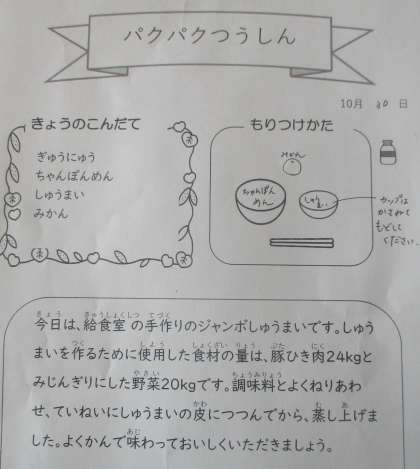 パクパクつうしん
10月 30 日
きょうのこんだて
ぎゅうにゅう
ちゃんぽんめん
しゅうまい
みかん
もりつけかた
みかん
ちゃんぽん
めん
しゅうまい
カップは
かさねて
もどして
ください。
今日は、給食室の手作りのジャンボしゅうまいです。しゅう
まいを作るために使用した食材の量は、豚ひき肉24kgと
みじんぎりにした野菜20kgです。調味料とよくねりあわ
せ、ていねいにしゅうまいの皮につつんでから、蒸し上げま
した。よくかんで味わっておいしくいただきましょう。